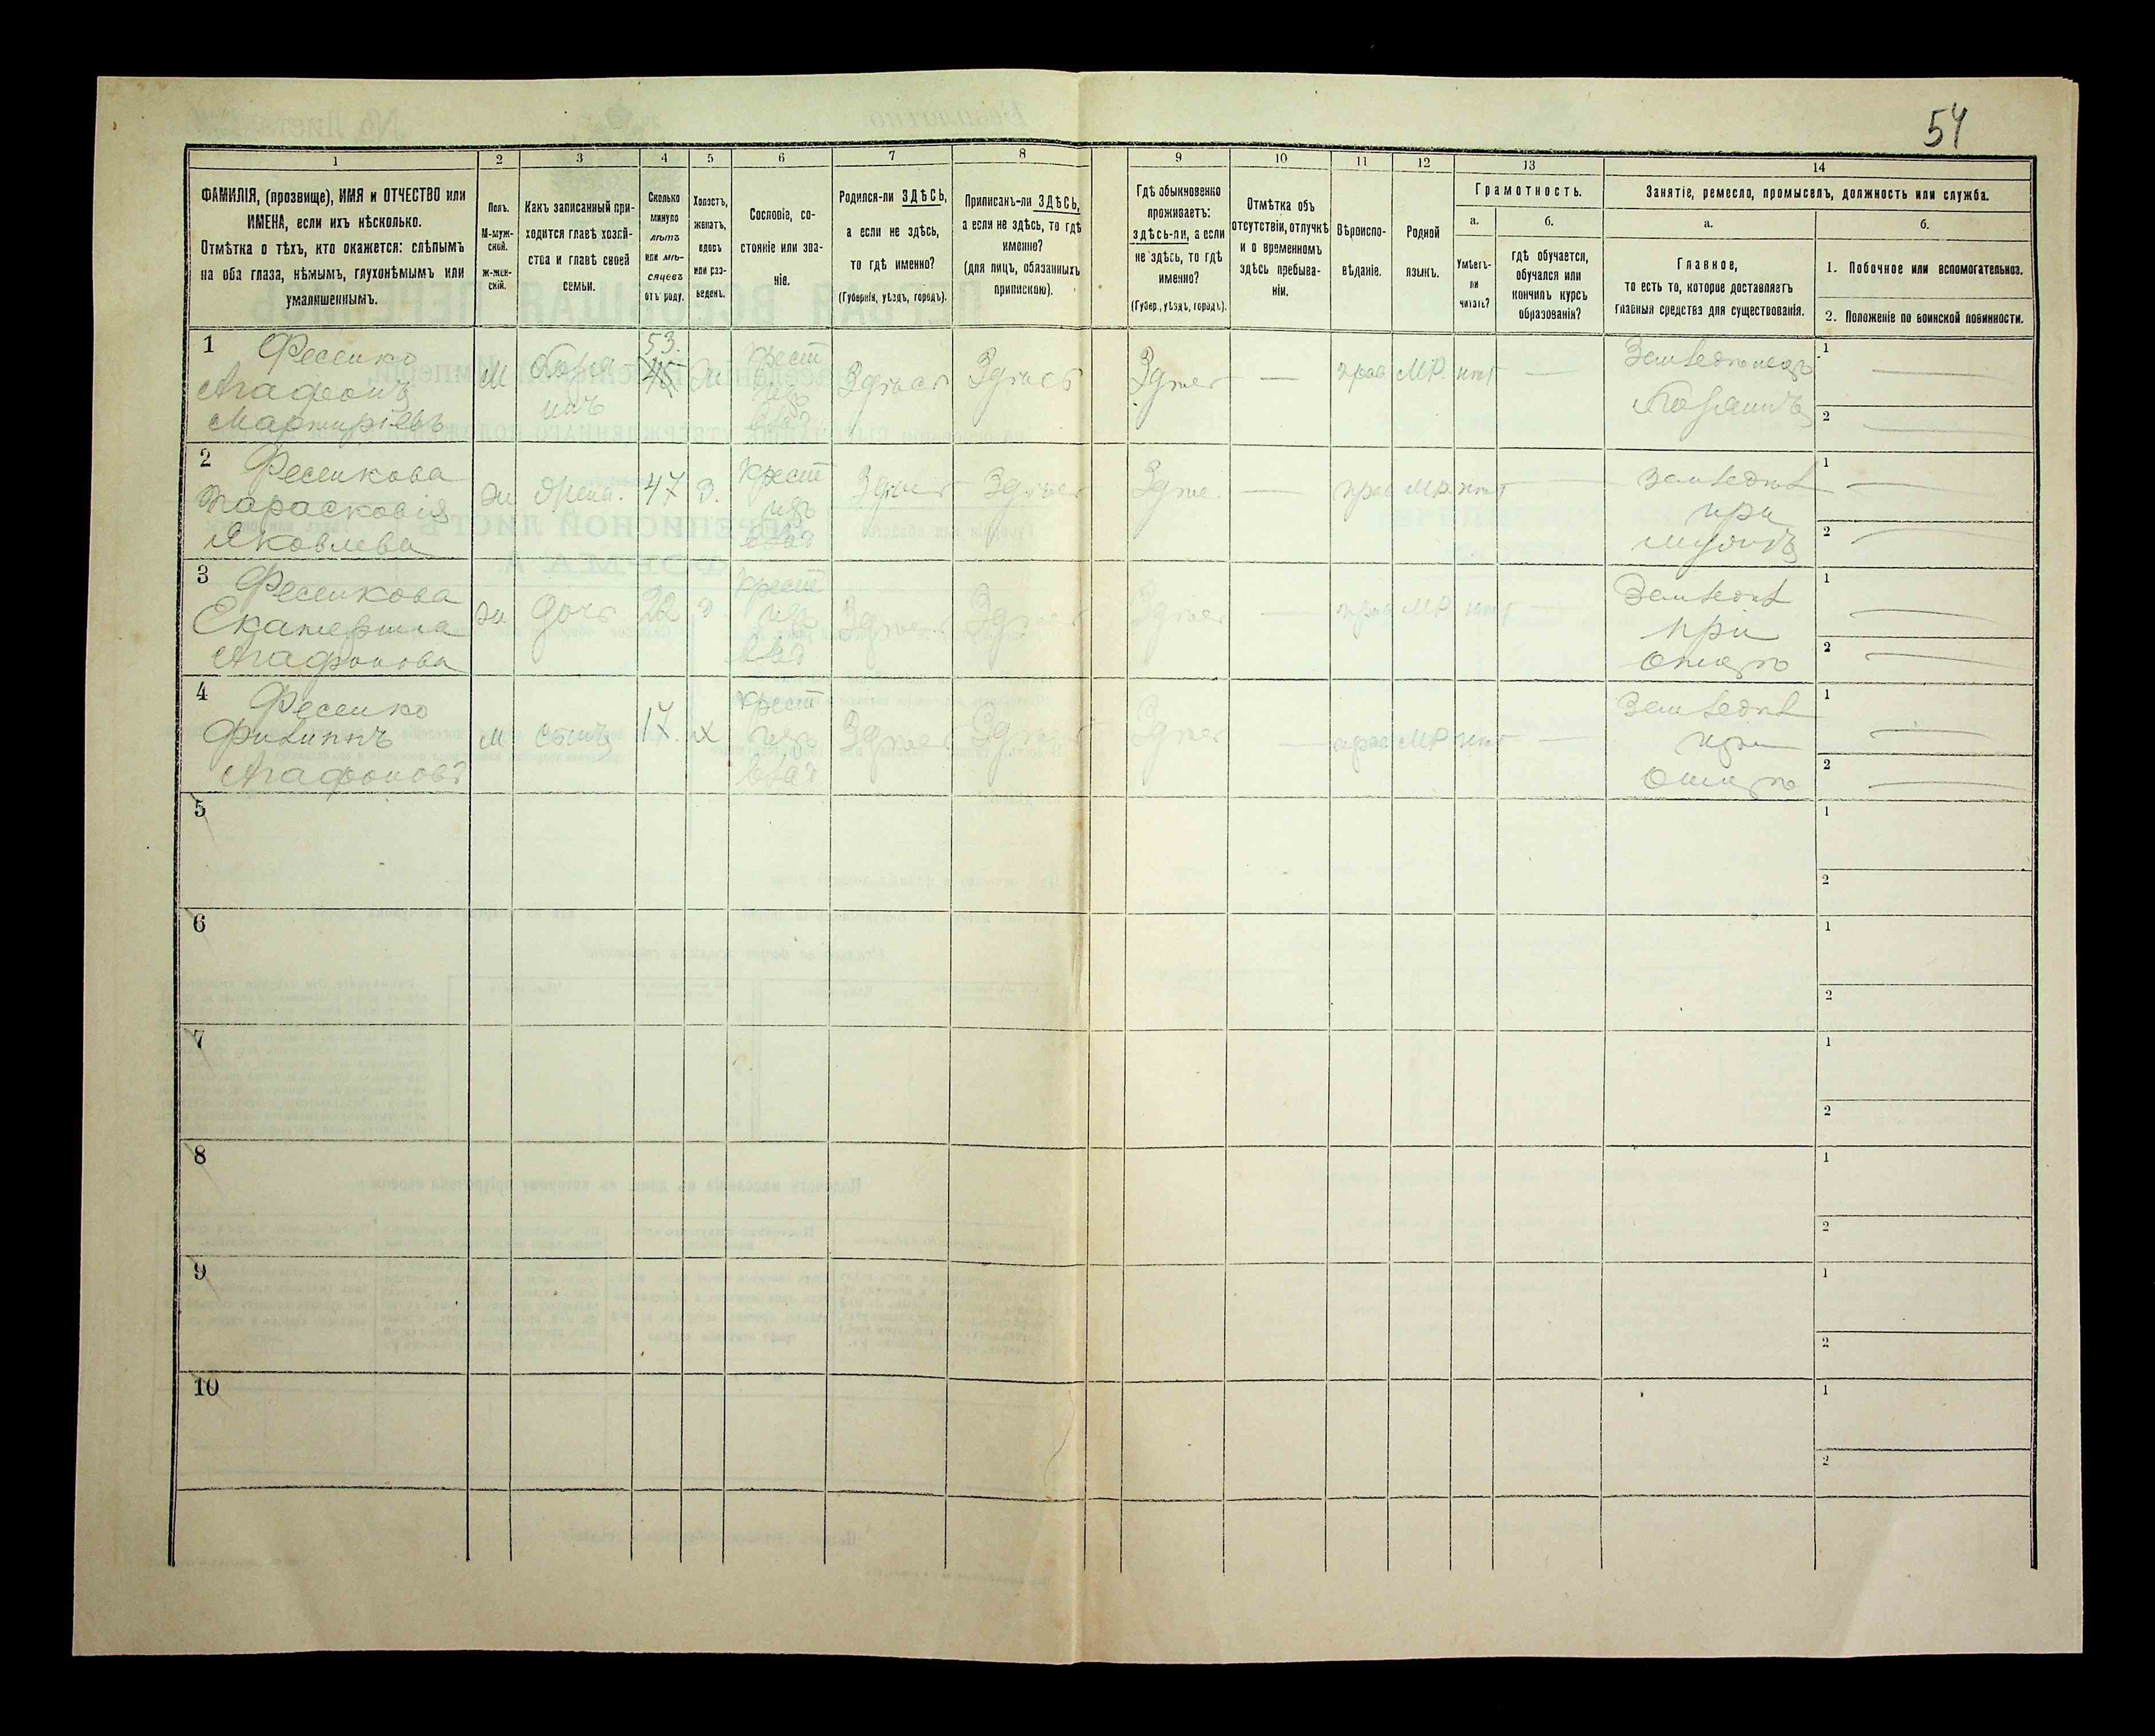 54
1 2 3 4 5 6 7 8 9 10 11 12 13 14
ФАМИЛІЯ, (прозвище), ИМЯ и ОТЧЕСТВО или
ИМЕНА, если ихъ нѣсколько.
Отмѣтка о тѣхъ, кто окажется: слѣпымъ
на оба глаза, нѣмымъ, глухонѣмымъ или
умалишеннымъ.
Полъ.
М-муж-
ской.
Ж-жен-
скій.
Какъ записанный при-
ходится главѣ хозяй-
ства и главѣ своей
семьи.
Сколько
минуло
лѣтъ
или мѣ-
сяцевъ
отъ роду.
Холостъ,
женатъ,
вдовъ
или раз-
веденъ.
Сословіе, со-
стояніе или зва-
ніе.
Родился-ли ЗДѢСЬ,
а если не здѣсь,
то гдѣ именно?
(Губернія, уѣздъ, городъ).
Приписанъ-ли ЗДѢСЬ,
а если не здѣсь, то гдѣ
именно?
(для лицъ, обязанныхъ
припискою).
Гдѣ обыкновенно
проживаетъ:
здѣсь-ли, а если
не здѣсь, то гдѣ
именно?
(Губер., уѣздъ, городъ).
Отмѣтка объ
отсутствіи, отлучкѣ
и о временномъ
здѣсь пребыва-
ніи.
Вѣроиспо-
вѣданіе.
Родной
языкъ.
Грамотность.
а.
Умѣетъ-
ли
читать?
б.
гдѣ обучается,
обучался или
кончилъ курсъ
образованія?
Занятіе, ремесло, промыселъ, должность или служба.
а.
Главное,
то есть то, которое доставляетъ
главныя средства для существованія.
б.
1. Побочное или вспомогательное.
2. Положеніе по воинской повинности.
1 Фесенко
Агафонъ
Мартиріевъ
М
53.
Ж
Крест
изъ
влад
Здѣсь
Здѣсь
Здѣсь
—
прав
МР.
нѣт
—
1
2
2 Фесенкова
Парасковія
Яковлева
Ж
жена.
47
З.
Крест
изъ
влад
Здѣсь
Здѣсь
Здѣс.
—
прав
МР.
нѣт
—
при
мужѣ
1
2
3 Фесенкова
Екатерина
Агафонова
Ж
дочь
22
Крест
изъ
влад
Здѣсь
Здѣсь
Здѣсь
—
прав
МР
нѣт
—
при
отцѣ
1
2
4 Фесенко
Филиппъ
Агафоновъ
М
сынъ
17.
Х
Крест
изъ
влад
Здѣсь
Здѣсь
Здѣсь
—
прав
МР
нѣт
—
при
отцѣ
1
2
5
1
2
6
1
2
7
1
2
8
1
2
9
1
2
10
1
2